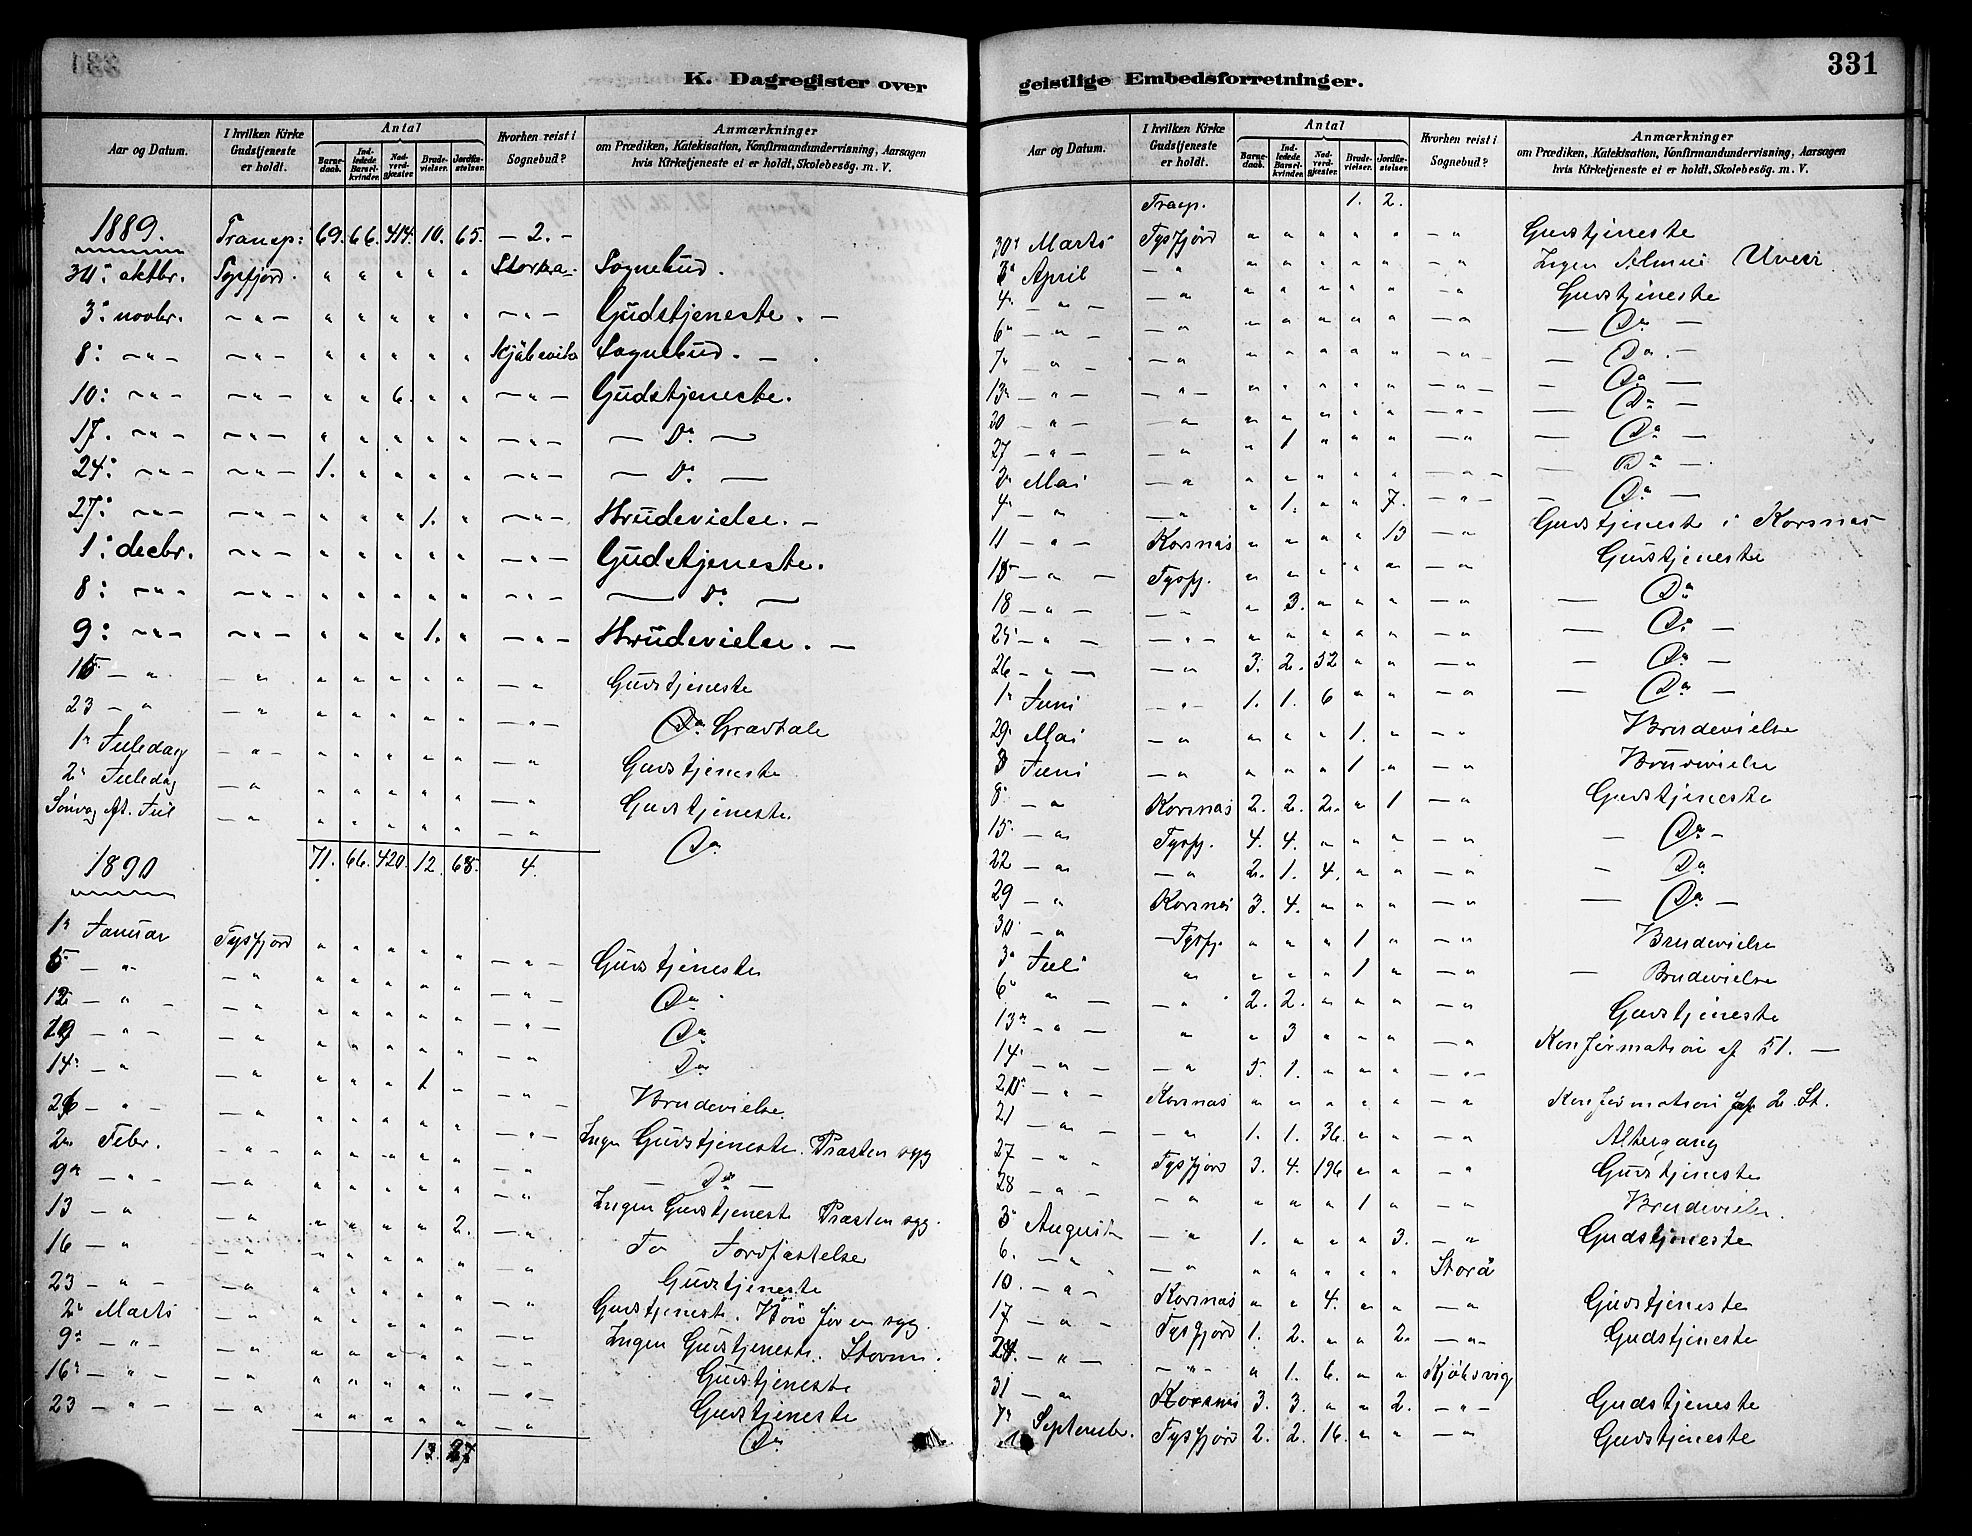 K. Dagregister over
Aar og Datum. I hvilken Kirke Gudstjeneste er holdt. Antal Barnedaab. Indledede Barselkvinder. Nadverdgjæster. Brudevielser. Jordfæstelser. Hvorhen reist i Sognebud? Anmærkninger om Prædiken, Katekisation, Konfirmandundervisning, Aarsagen hvis Kirketjeneste ei er holdt, Skolebesög. m. V.
1889. Transp: 69. 66. 414. 10. 65. – 2. –
30: oktbr. Tysfjord. " " " " " Storaa: Sognebud.
3: novbr. – " – " " " " " – " – Gudstjeneste. –
8: – " – – " – " " " " " Kjöbsvik Sognebud. –
10: – " – – " – " " 6. " " – " – Gudstjeneste.
17. – " – – " – " " " " " – " – – Do –
24: – " – – " – 1. " " " " – " – – Do –
27: – " – – " – " " " 1. " – " – Brüdevielse. –
1: decbr. – " – " " " " " – " – Gudstjeneste.
8: – " – – " – " " " " " – " – – Do –
9: – " – – " – " " " 1. " – " – Brüdevielse. –
15 – " – " " " " " " – " Gudstjeneste
23 – " – " " " " " " – " – Do Gravtale
1ste Juledag – " – " " " " " – " Gudstjeneste
2n Juledag – " " " " " " – " Gudstjeneste.
Söndag Aft. Jul – " " " " " " – " Do
1890 71. 66. 420. 12. 68. 4.
1n Januar Tysfjord " " " " " – " – Gudstjeneste
5 – " – " " " " " " – " – Do
12 – " – – " " " " " " – " – Do
19 – " – – " " " " " " – " Do
14 – " – " " " " 1 – – " – Brudevielse
26 – " – – " " " " " " – " – Ingen Gudstjeneste. Præsten syg
2n Febr. – " – " " " " " – " – Do –
9n – " – – " " " " " " – " Ingen Gudstjeneste Præsten syg.
13 – " – " " " " " 2. – " To Jordfæstelse
16 – " – " " " " " " – " Gudstjeneste
23 – " – – " " " " " " – " Gudstjeneste.
2n Marts – " " " " " " – " Ingen Gudstjeneste. Storm.
9n – " – – " " " " " " – " Gudstjeneste
16n – " – – " " " " " " – " – Gudstjeneste
23 – " – – " " " " " " – " Do
13. 27
331
geistlige Embedsforretninger.
Aar og Datum. I hvilken Kirke Gudstjeneste er holdt. Antal Barnedaab. Indledede Barselkvinder. Nadverdgjæster. Brudevielser. Jordfæstelser. Hvorhen reist i Sognebud? Anmærkninger om Prædiken, Katekisation, Konfirmandundervisning, Aarsagen hvis Kirketjeneste ei er holdt, Skolebesög. m. V.
Transp. 1. 2.
30n Marts Tysfjord " " " " " – " Gudstjeneste
3n April – " " " " " " – " Ingen Almui Uveir
4n – " – – " " " " " " – " Gudstjeneste
6n – " – – " " " " " " – " – Do –
7n – " – – " " " " " " – " – – Do –
13n – " – – " – " " " " " – " – – Do –
20 – " – – " " " " " " – " – – Do –
27 – " – – " " 1 " " " – " – Do –
2n Mai – " " " " " " – " – – Do –
4n – " – " " 1. " " 7. – " – – Do –
11 – " – Korsnæs " " " " 13 – " Gudstjeneste i Korsnæs
15 – " – Tysfj. " " " " " – " Gudstjeneste
18 – " – – " " 3. " " " – " – Do
25 – " – – " – " " " " " – " – Do –
26 – " – – " 3. 2. 32 " " – " – Do –
1n Juni – " – 1. 1. 6 " " – " – Do –
29. Mai – " " " " 1. " – " Brudevielse
3 Juni – " " " " 1 " – " Brudevielse
8n – " Korsnæs 2. 2. 2. " 1 – " Gudstjeneste
15. – " Tysfj. 4. 4. " " " – " – Do –
22 – " – " 2. 1. 4. " " – " – Do
29 – " Korsnæs 3. 4. " " " – " – Do –
30 – " – Tysfj. " " " 1 " – " Brudevielse
3n Juli " " " " 1 " – " – Brudevielse
6n " – – " 2. 2. " " " – " Gudstjeneste
13n – " – " " 3 " " " – " Konfirmation af 51. –
14. – " – – " 5. 1. " " " – " –
20. – " – Korsnæs " " " " " – " Konfirmation af 2 St.
21 – " – – " 1. 1. 36. " " – " Altergang
27 – " " Tysfjord 3. 4. 196 " " – " Gudstjeneste
28 – " – – " " " " 1 " – " Brudevielse.
3 August – " 1. " " " 3. – " Gudstjeneste
6. – " – – " " " " " " Storå
10. – " – Korsnæs " " 4. " " – " Gudstjeneste
17 – " – Tysfjord 1. 2. " " 2. – " – Gudstjeneste
24. – " – – " – " 1. 6. " " Kjöbsvig
31 – " Korsnæs 3. 3. " " 2. – " – Gudstjeneste
7n September. Tysfjord 2. 2. 16. " " – " Gudstjeneste